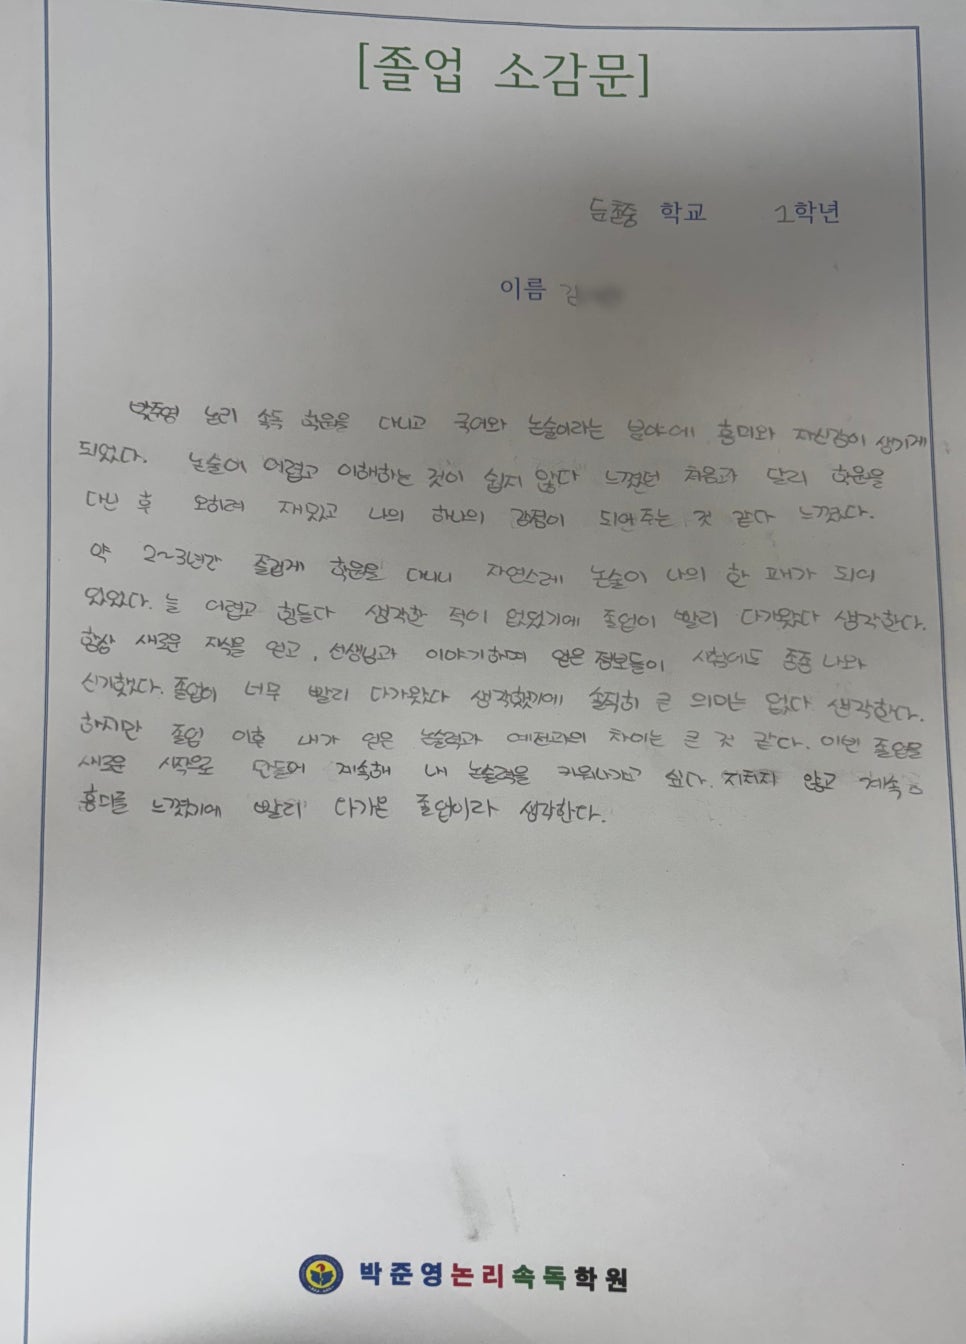 [졸업 소감문]
둔촌중 학교 1학년
이름 김
박준영 논리 속독 학원을 다니고 국어와 논술이라는 분야에 흥미와 자신감이 생기게
되었다. 논술이 어렵고 이해하는 것이 쉽지 않다 느꼈던 처음과 달리 학원을
다닌 후 오히려 재밌고 나의 하나의 강점이 되어주는 것 같다 느꼈다.
약 2~3년간 즐겁게 학원을 다니니 자연스레 논술이 나의 한 패가 되어
있었다. 늘 어렵고 힘들다 생각한 적이 없었기에 졸업이 빨리 다가왔다 생각한다.
항상 새로운 지식을 얻고, 선생님과 이야기하며 얻은 정보들이 시험에도 종종 나와
신기했다. 졸업이 너무 빨리 다가왔다 생각했기에 솔직히 큰 의미는 없다 생각한다.
하지만 졸업 이후 내가 얻은 논술력과 예전과의 차이는 큰 것 같다. 이번 졸업을
새로운 시작으로 만들어 계속해 내 논술력을 키워나가고 싶다. 지치지 않고 계속
흥미를 느꼈기에 빨리 다가온 졸업이라 생각한다.
박준영논리속독학원